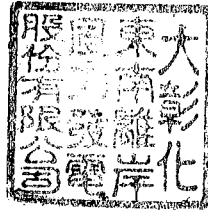 大彰化
東南離岸
風力發電
股份有限公司